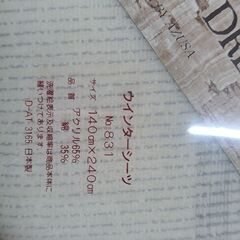 ウィンターシーツ
No.831
サイズ 140㎝×240㎝
品質 アクリル65%
綿 35%
洗濯絵表示及び収縮率は商品本体に
縫いつけてあります
D-AT 3165 日本製